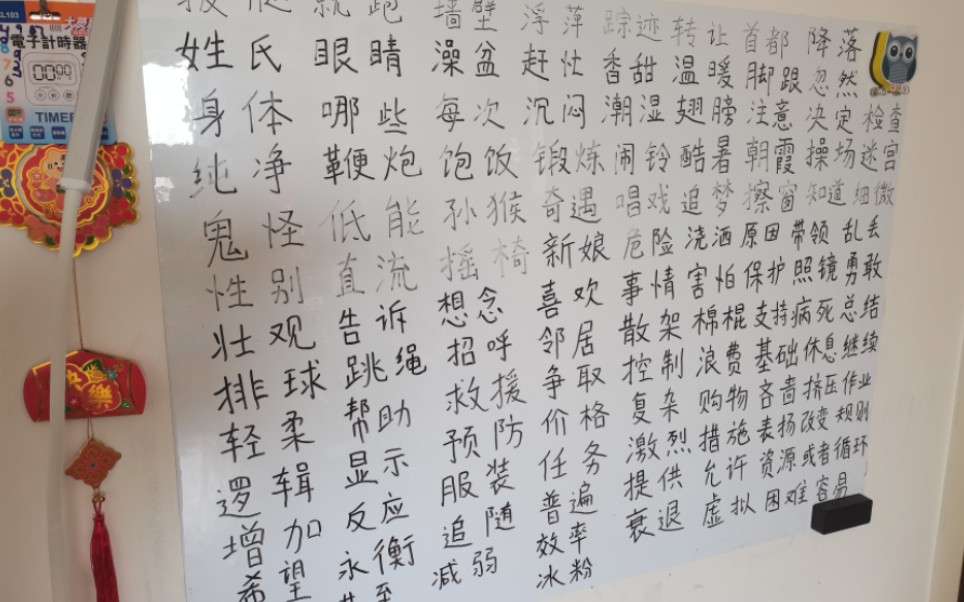 墙壁 浮萍 踪迹 转让 首都 降落
姓氏 眼睛 澡盆 赶忙 香甜 温暖 脚跟 忽然
身体 哪些 每次 沉闷 潮湿 翅膀 注意 决定 检查
纯净 鞭炮 饱饭 锻炼 闹铃 酷暑 朝霞 操场 迷宫
鬼怪 低能 孙猴 奇遇 唱戏 追梦 擦窗 知道 细微
性别 直流 摇椅 新娘 危险 浇洒 原因 带领 乱丢
壮观 告诉 想念 喜欢 事情 害怕 保护 照镜 勇敢
排球 跳绳 招呼 邻居 散架 棉棍 支持 病死 总结
轻柔 帮助 救援 争取 控制 浪费 基础 休息 继续
逻辑 显示 预防 价格 复杂 购物 吝啬 挤压 作业
增加 反应 服装 任务 激烈 措施 表扬 改变 规则
希望 永衡 追随 普遍 提供 允许 资源 或者 循环
减弱 效率 衰退 虚拟 困难 容易
冰粉
電子計時器
TIMER
樂